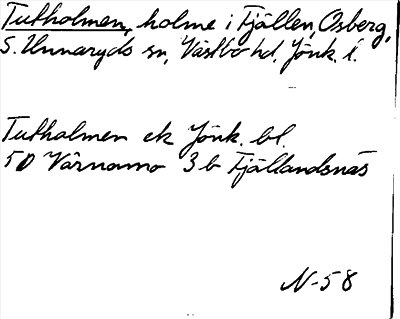 Tutholmen, holme i Fjällen, Osberg,
S. Unnaryds sn, Västbo hd, Jönk. l.
Tutholmen ek Jönk. bl.
5D Värnamo 3b Fjällandsnäs
N-58